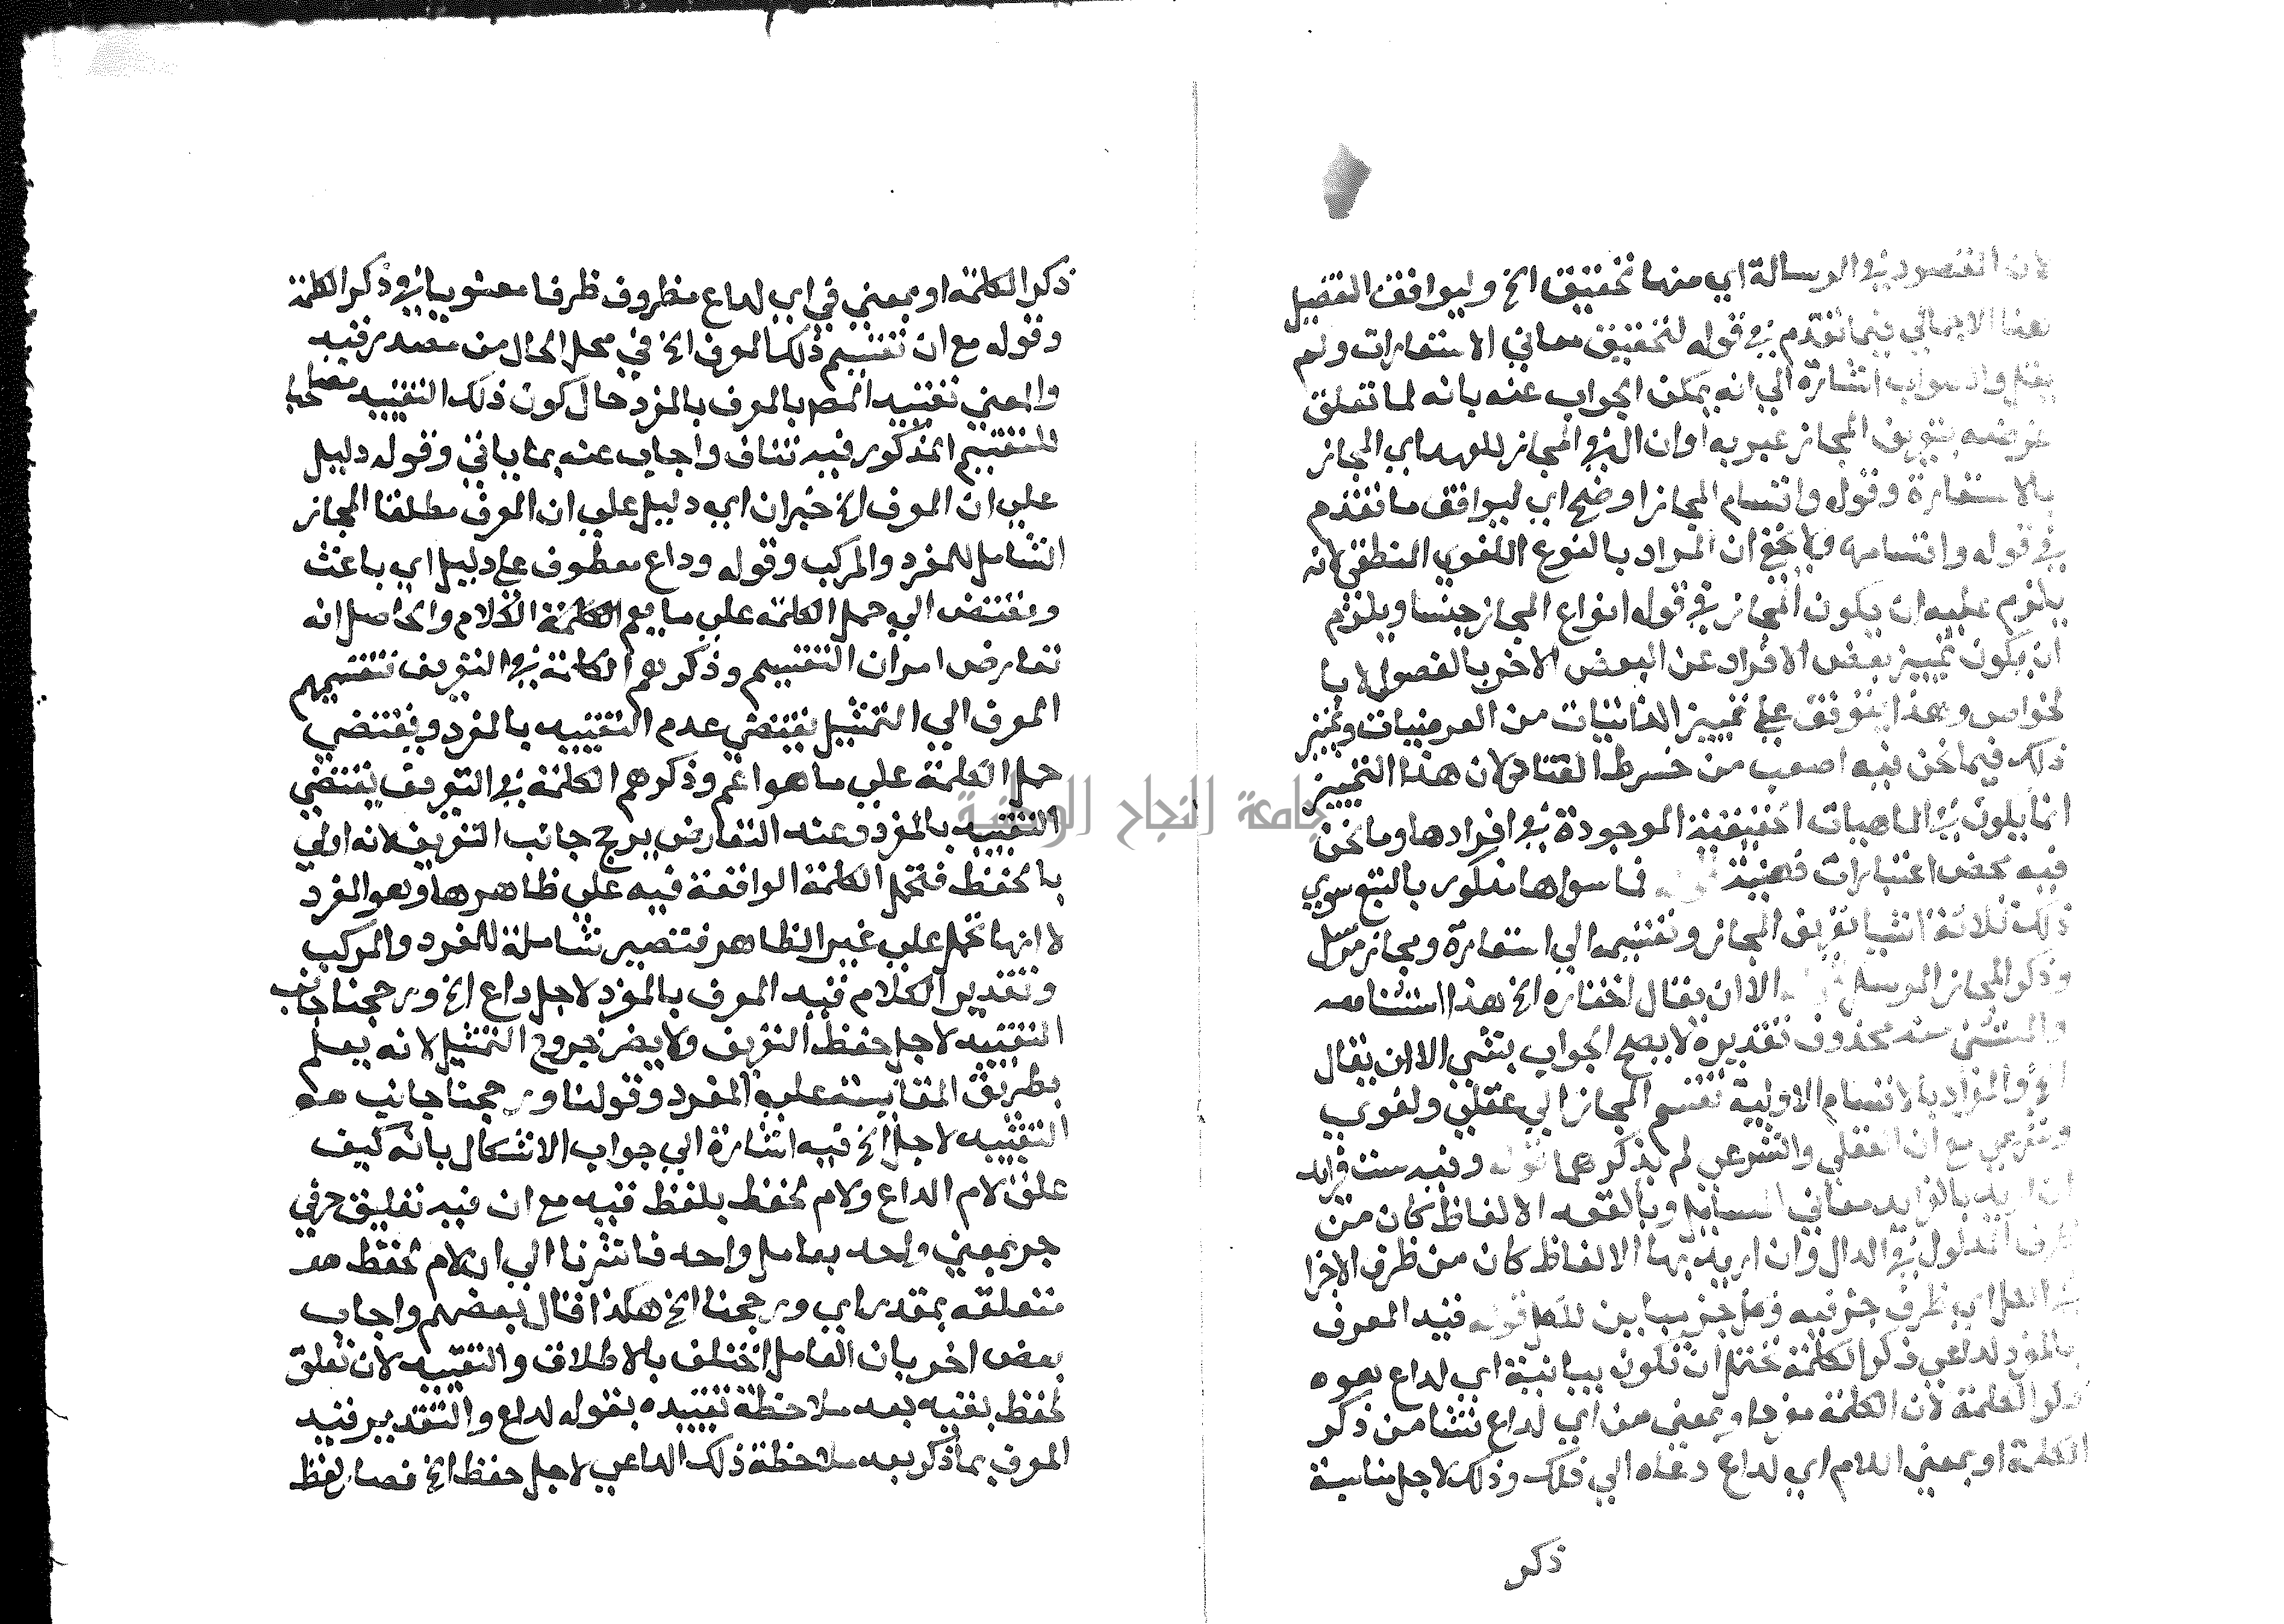 لان المقصود في الرسالة اي منها تحقيق الخ وليوافق التفصيل
هنا الاجمالي فيما تقدم في قوله لتحقيق معاني الاستعارات ولم
يقل والصواب اشارة الي انه يمكن الجواب عنه بانه لما تعلق
غرضه بتعريف المجاز عبر به او ان ال في المجاز للعهد اي المجاز
بالاستعارة وقوله واقسام المجاز اوضح اي ليوافق ما تقدم
في قوله واقسامها ولا يخفي ان المراد بالنوع اللغوي المنطقي لانه
يلزم عليه ان يكون المجاز في قوله انواع المجاز جنسا ويلزم
ان يكون تمييز بعض الافراد عن البعض الاخر بالفصول لا با
لخواص وهذا يتوقف علي تمييز الذاتيات من العرضيات وتميز
ذلك فيما نحن فيه اصعب من خرط القتاد لان هذا التمييز
انما يكون في الماهيات الحقيقية الموجودة في افرادها وما نحن
فيه محض اعتبارات ذهنية قوله فما سواها مذكور بالتبع سوي
ذلك ثلاثة اشيا تعريف المجاز وتقسيمه الي استعارة ومجاز مرسل
وذكر المجاز المرسل قوله الا ان يقال اختاره الخ هذا استثنا مـ
والمستثني منه محذوف تقديره لا يصح الجواب بشي الا ان يقال
الخ والمراد بالاقسام الاولية تقسم المجاز الي عقلي ولغوي
وشرعي مع ان العقلي والشرعي لم يذكرهما قوله وفيه ست فرايد
ان اريد بالفرايد معاني المسايل وبالعقد الالفاظ كان من
ظرف المدلول في الدال وان اريد بها الالفاظ كان من ظرف الاجزا
في الكل اي ظرف جز فيه وكل جز مباين للكل قوله قيد المعرف
بالمفرد لداعي ذكر الكلمة تحتمل ان تكون بيانية اي لداع هو
ذكر الكلمة لان الكلمة مفرد او بمعني من اي لداع نشا من ذكر
الكلمة او بمعني اللام اي لداع دعاه الي ذلك وذلك لاجل مناسبة
ذكر
ذكر الكلمة او بمعني في اي لداع مظروف ظرفا معنويا في ذكر الكلمة
وقوله مع ان تقسيم ذلك المعرف الخ في محل الحال من مصدر قيد
والمعني تقييد المص بالمعرف بالمفرد حال كون ذلك التقييد مصاحبا
للتقسيم المذكور فيه تناف واجاب عنه بما ياتي وقوله دليل
علي ان المعرف الخ خبر ان اي دليل علي ان المعرف مطلقا المجاز
الشامل للمفرد والمركب وقوله وداع معطوف علي دليل اي باعث
ومقتض الي حمل الكلمة علي ما يعم الكلمة الكلام والحاصل انه
تعارض امران التقسيم وذكرهم الكلمة في التعريف تقسيمهم
المعرف الي التمثيل يقتضي عدم التقييد بالمفرد ويقتضي
حمل الكلمة علي ما هو اعم وذكرهم الكلمة في التعريف يقتضي
التقييد بالمفرد وعند التعارض يرجح جانب التعريف لانه اولي
بالحفظ فتحمل الكلمة الواقعة فيه علي ظاهرها وهو المفرد
لا انها تحمل علي غير الظاهر فتصير شاملة للمفرد والمركب
وتقدير الكلام قيد المعرف بالمفرد لاجل داع الخ ورجحنا جانب
التقييد لاجل حفظ التعريف ولا يضر خروج التمثيل لانه يعلم
بطريق المقايسة علي المفرد وقولنا ورجحنا جانب
التقييد لاجل الخ فيه اشارة الي جواب الاشكال بانه كيف
علق لام الداع ولام لحفظ بلفظ قيد مع ان فيه تعليق حرفي
جر بمعني واحد بعامل واحد فاشرنا الي ان لام لحفظ
متعلقه بمقدر اي ورجحنا الخ هكذا قال بعضهم واجاب
بعض اخر بان العامل اختلف بالاطلاق والتقييد لان تعلق
لحفظ بقيد بعد ملاحظة تقييده بقوله لداع والتقدير قيد
المعرف بما ذكر بعد ملاحظة ذلك الداعي لاجل حفظ الخ فصار لفظ
جامعة النجاح الوطنية